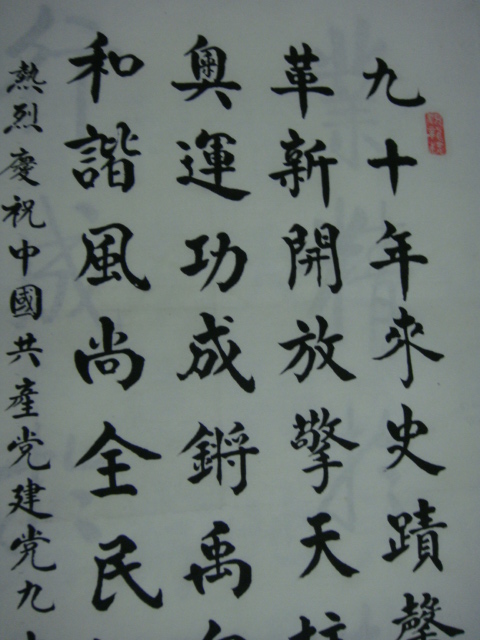 九十年來史蹟馨
革新開放擎天
奧運功成鏘禹
和諧風尚全民
熱烈慶祝中國共產党建党九